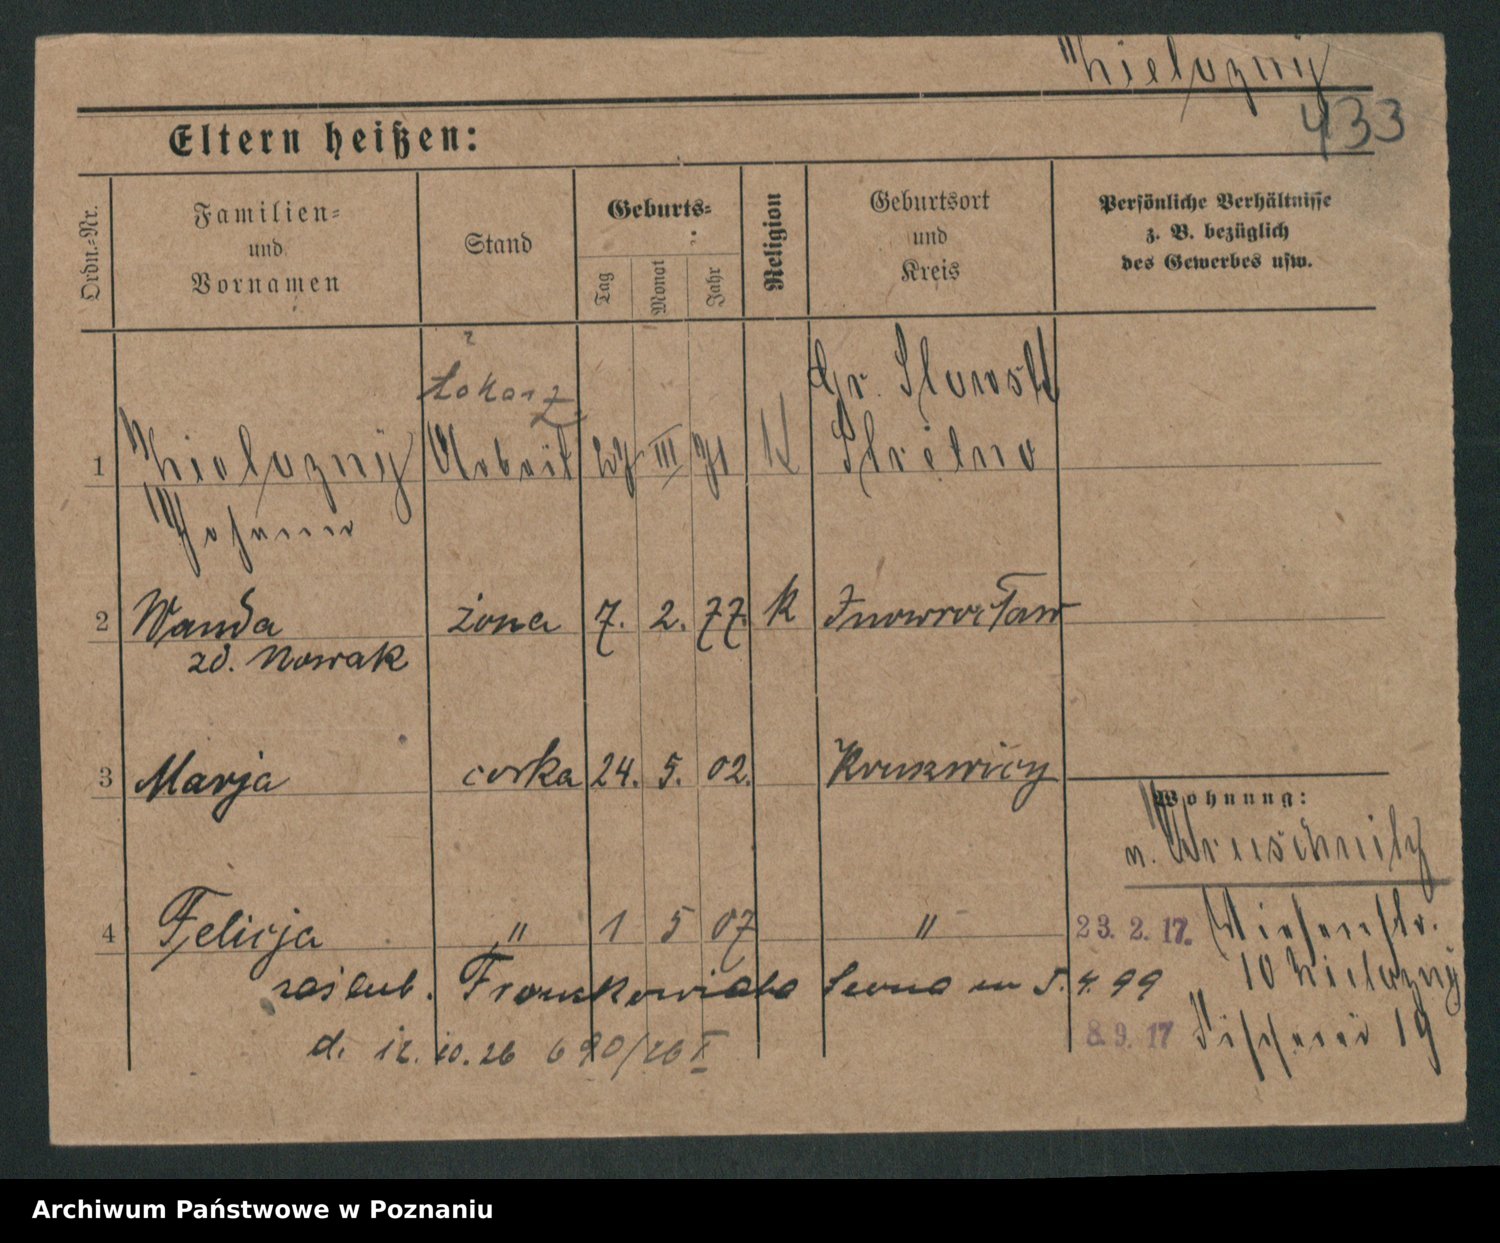 Nielazny
433
Eltern heißen:
Ordn.-Nr.
Familien-
und
Vornamen
Stand
Geburts-
Tag
Monat
Jahr
Religion
Geburtsort
und
Kreis
Persönliche Verhältnisse
z. B. bezüglich
des Gewerbes usw.
1 Arbeit III 71 K Strelno
Johann
2 Wanda żona 7. 2. 77. K Inowrocław
zd. Nowak
3 Marja corka 24. 5. 02. Kruszwicy
Wohnung:
4 Felicja " 1 5 07 "
23. 2. 17. Wiesenstr.
10
zaślub. Leona 5. 4. 99
8. 9. 17 Fischerei 19
d. 12. 10. 26 690/26 I
Archiwum Państwowe w Poznaniu